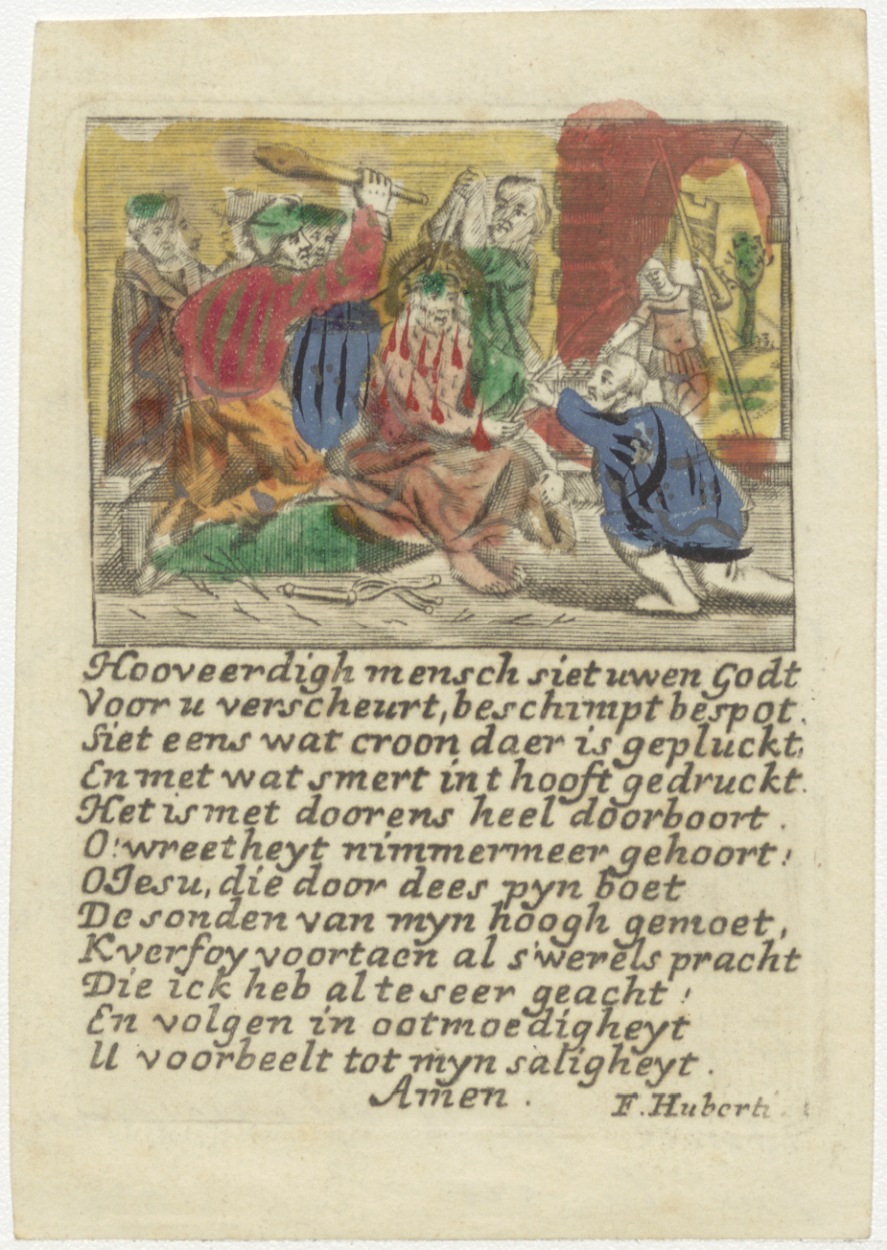 Hooveerdigh mensch siet uwen Godt
Voor u verscheurt, beschimpt bespot.
Siet eens wat croon daer is gepluckt,
En met wat smert int hooft gedruckt.
Het is met doorens heel doorboort.
O! wreetheyt nimmermeer gehoort!
O Jesu, die door dees pyn boet
De sonden van myn hoogh gemoet,
K verfoy voortaen al s'werels pracht
Die ick heb al te seer geacht!
En volgen in ootmoedigheyt
U voorbeelt tot myn saligheyt.
Amen.
F. Huberti